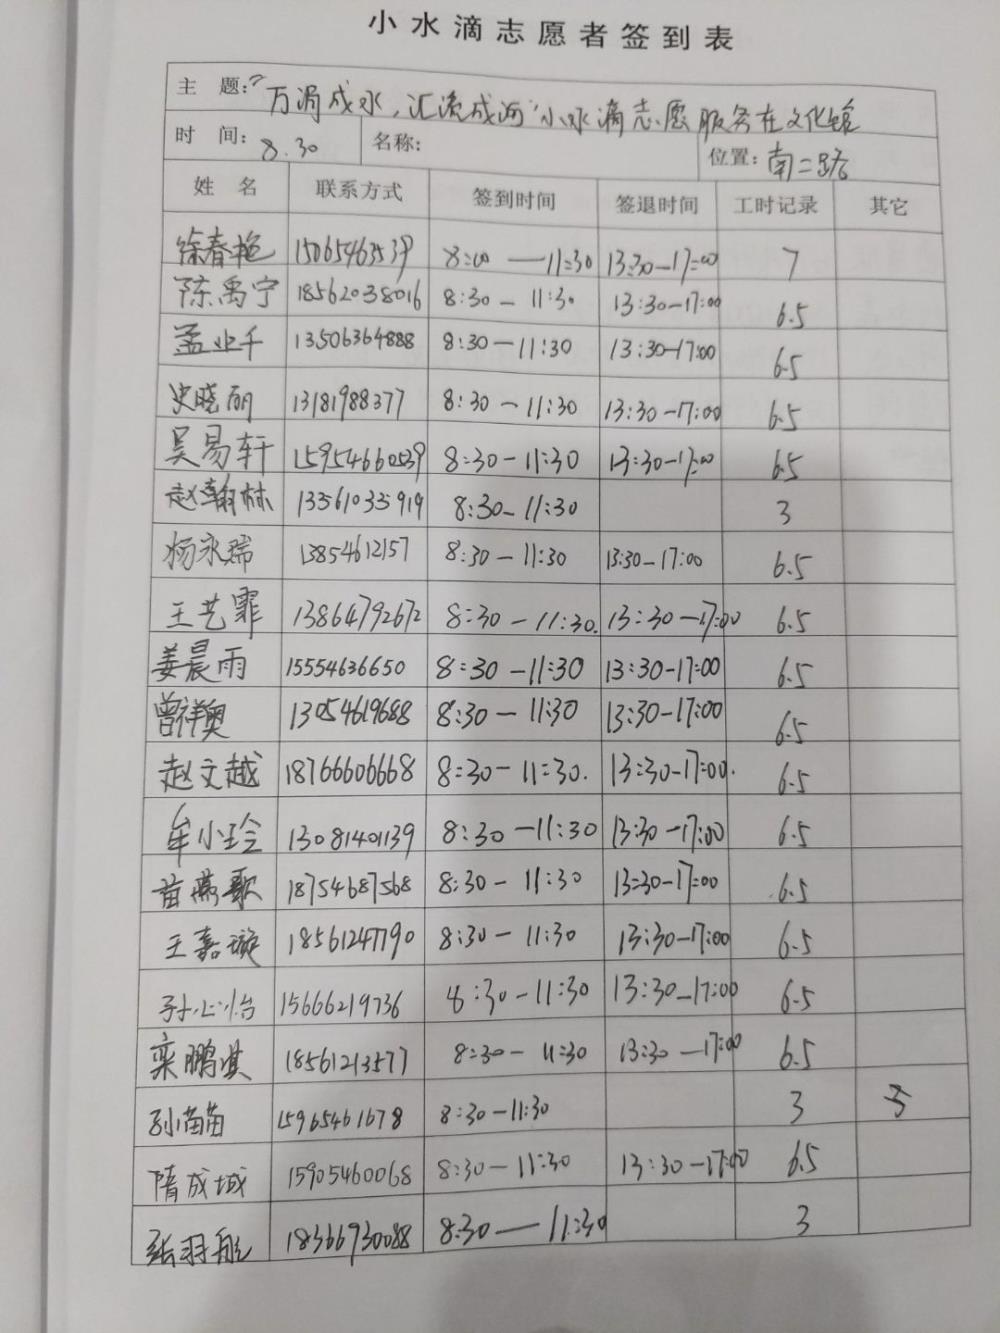 小水滴志愿者签到表
主 题："万涓成水，汇流成河"小水滴志愿服务在文化馆
时 间：8.30 名称： 位置：南二路
姓 名 联系方式 签到时间 签退时间 工时记录 其它
徐春艳 15065463539 8:00—11:30 13:30-17:00 7
陈禹宁 18562038016 8:30-11:30 13:30-17:00 6.5
孟业千 13506364888 8:30-11:30 13:30-17:00 6.5
史晓丽 13181988377 8:30-11:30 13:30-17:00 6.5
吴易轩 15954660539 8:30-11:30 13:30-17:00 6.5
赵翰林 13561033919 8:30-11:30 3
杨永瑞 13854612157 8:30-11:30 13:30-17:00 6.5
王艺霏 13864792672 8:30-11:30. 13:30-17:00 6.5
姜晨雨 15554636650 8:30-11:30 13:30-17:00 6.5
曾祥奥 13054619688 8:30-11:30 13:30-17:00 6.5
赵文越 18766606668 8:30-11:30. 13:30-17:00. 6.5
牟小玲 13081401139 8:30-11:30 13:30-17:00 6.5
苗燕歌 18754687568 8:30-11:30 13:30-17:00 6.5
王嘉璇 18561247790 8:30-11:30 13:30-17:00 6.5
孙心怡 15666219736 8:30-11:30 13:30-17:00 6.5
栾鹏淇 18561213577 8:30-11:30 13:30-17:00 6.5
孙苗苗 15965461678 8:30-11:30 3
隋成城 15905460068 8:30-11:30 13:30-17:00 6.5
张羽航 18366930088 8:30—11:30 3